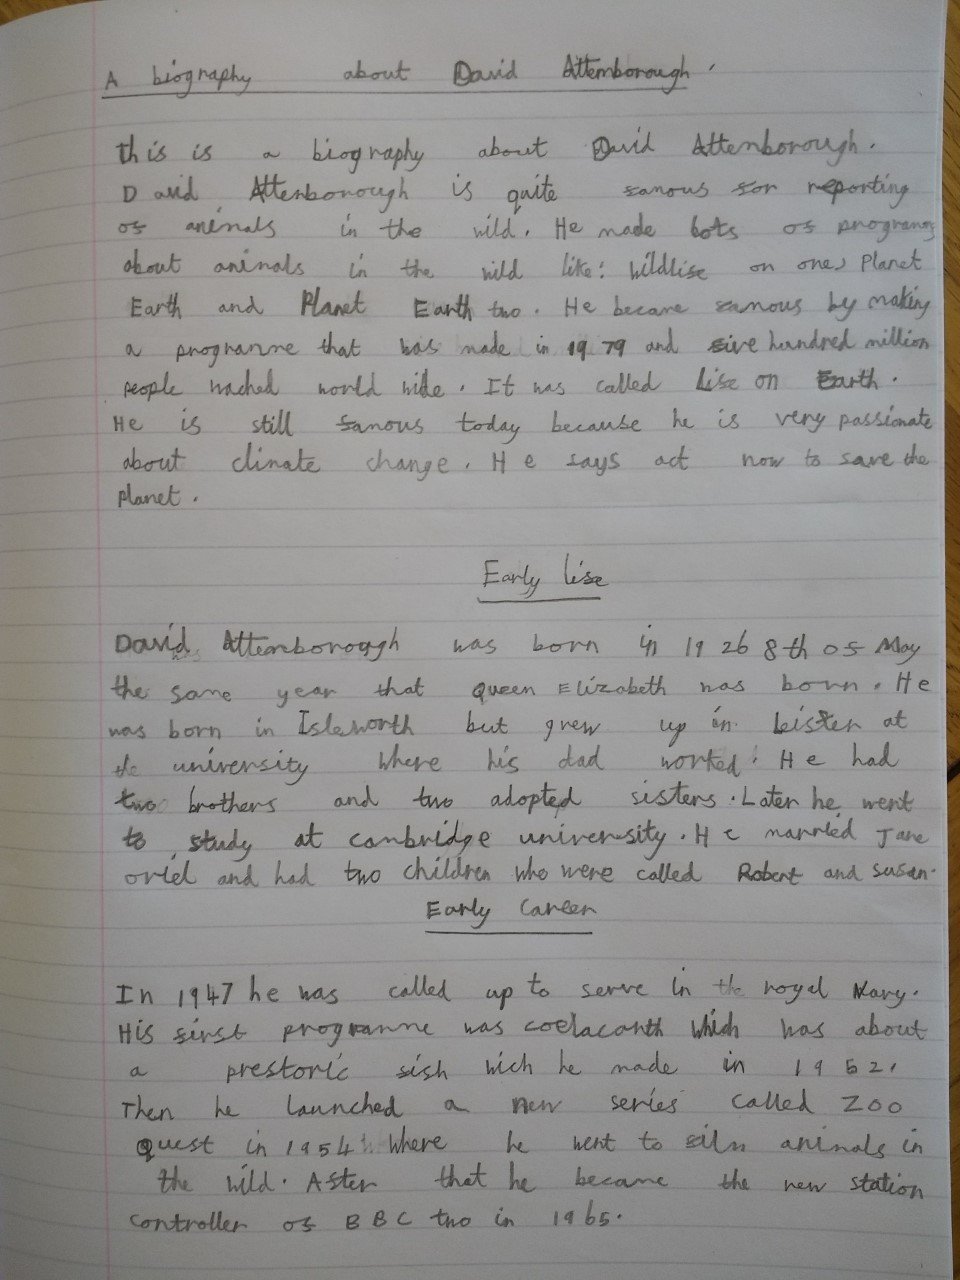 A biography about David Attemborough.
This is a biography about David Attenborough.
David Attenborough is quite famous for reporting
of animals in the wild. He made lots of programs
about animals in the wild like: Wildlife on one, Planet
Earth and Planet Earth two. He became famous by making
a programme that was made in 1979 and five hundred million
people wached world wide. It was called Life on Earth.
He is still famous today because he is very passionate
about climate change. He says act now to save the
planet.
Early life
David Attemborough was born in 1926 8th of May
the same year that Queen Elizabeth was born. He
was born in Isleworth but grew up in Leister at
the university where his dad worked. He had
two brothers and two adopted sisters. Later he went
to study at cambridge university. He married Jane
oriel and had two children who were called Robert and susan.
Early Career
In 1947 he was called up to serve in the royal Navy.
His first programme was coelacanth which was about
a prestoric fish wich he made in 1952.
Then he launched a new series called Zoo
Quest in 1954 where he went to film animals in
the wild. After that he became the new station
controller of BBC two in 1965.